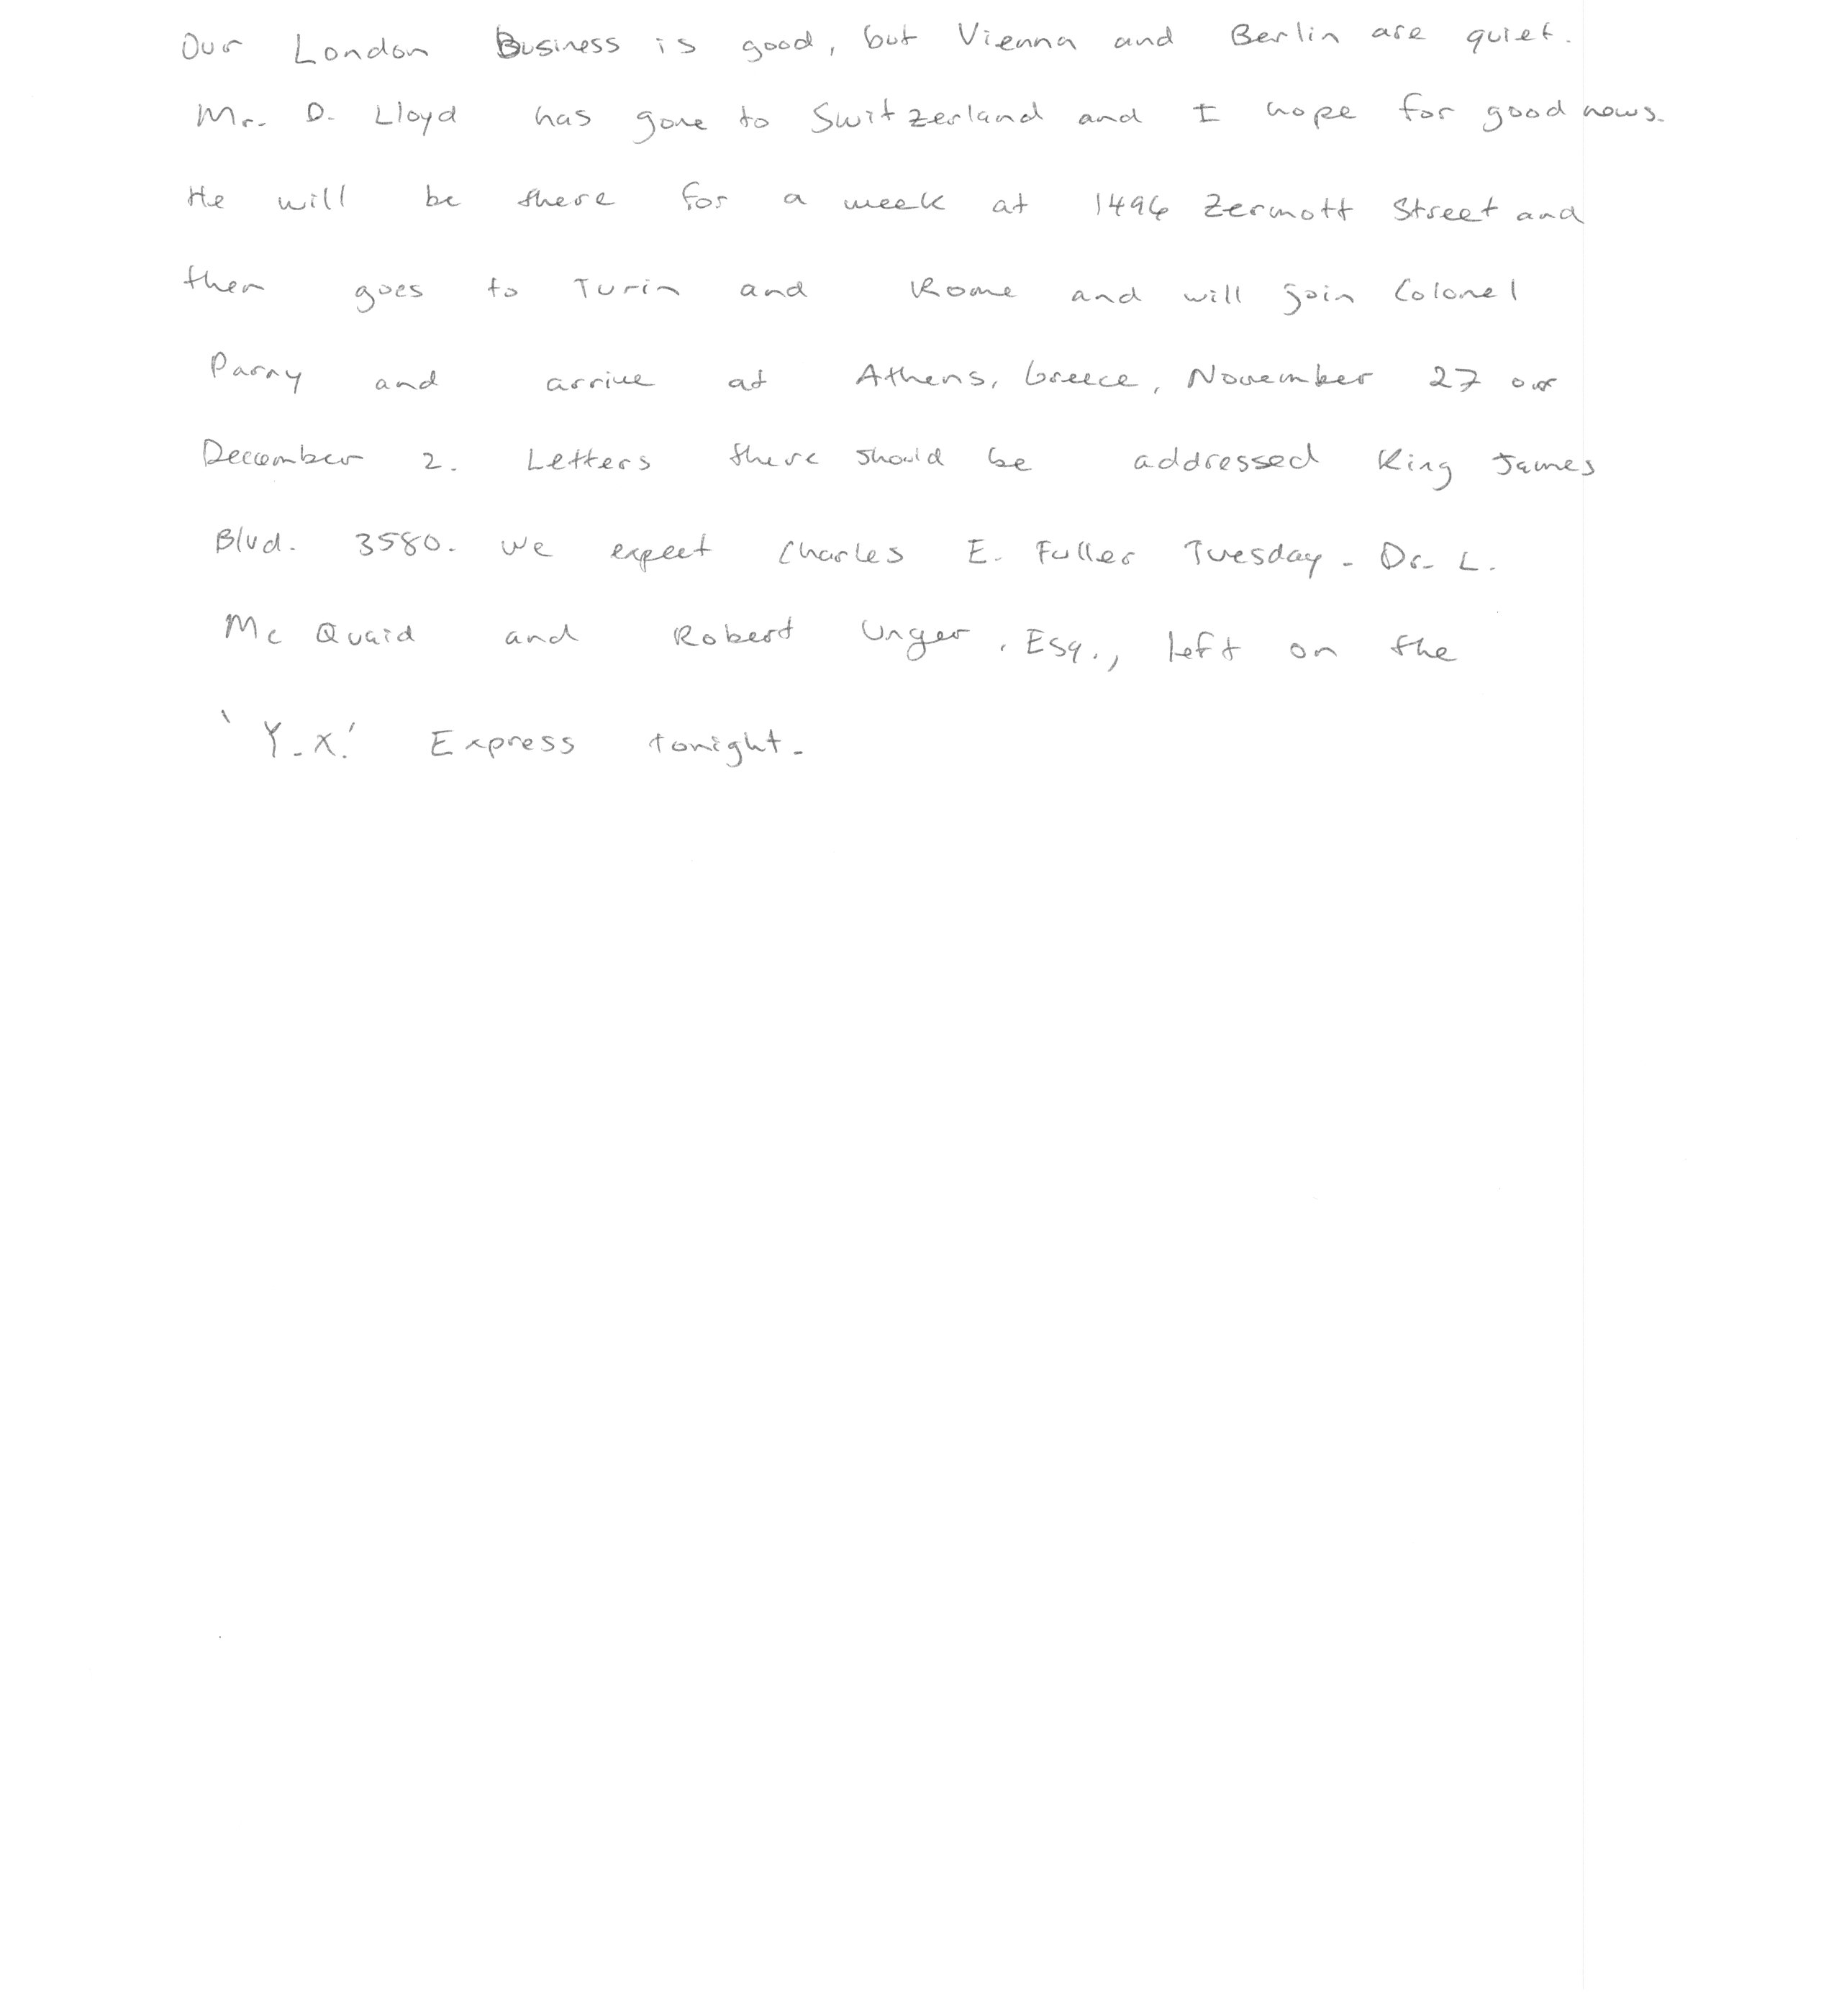 Our London Business is good, but Vienna and Berlin are quiet.
Mr. D. Lloyd has gone to Switzerland and I hope for good news.
He will be there for a week at 1496 Zermott Street and
then goes to Turin and Rome and will join Colonel
Parry and arrive at Athens, Greece, November 27 or
December 2. Letters there should be addressed King James
Blvd. 3580. We expect Charles E. Fuller Tuesday. Dr. L.
Mc Quaid and Robert Unger, Esq., left on the
'Y.X.' Express tonight.